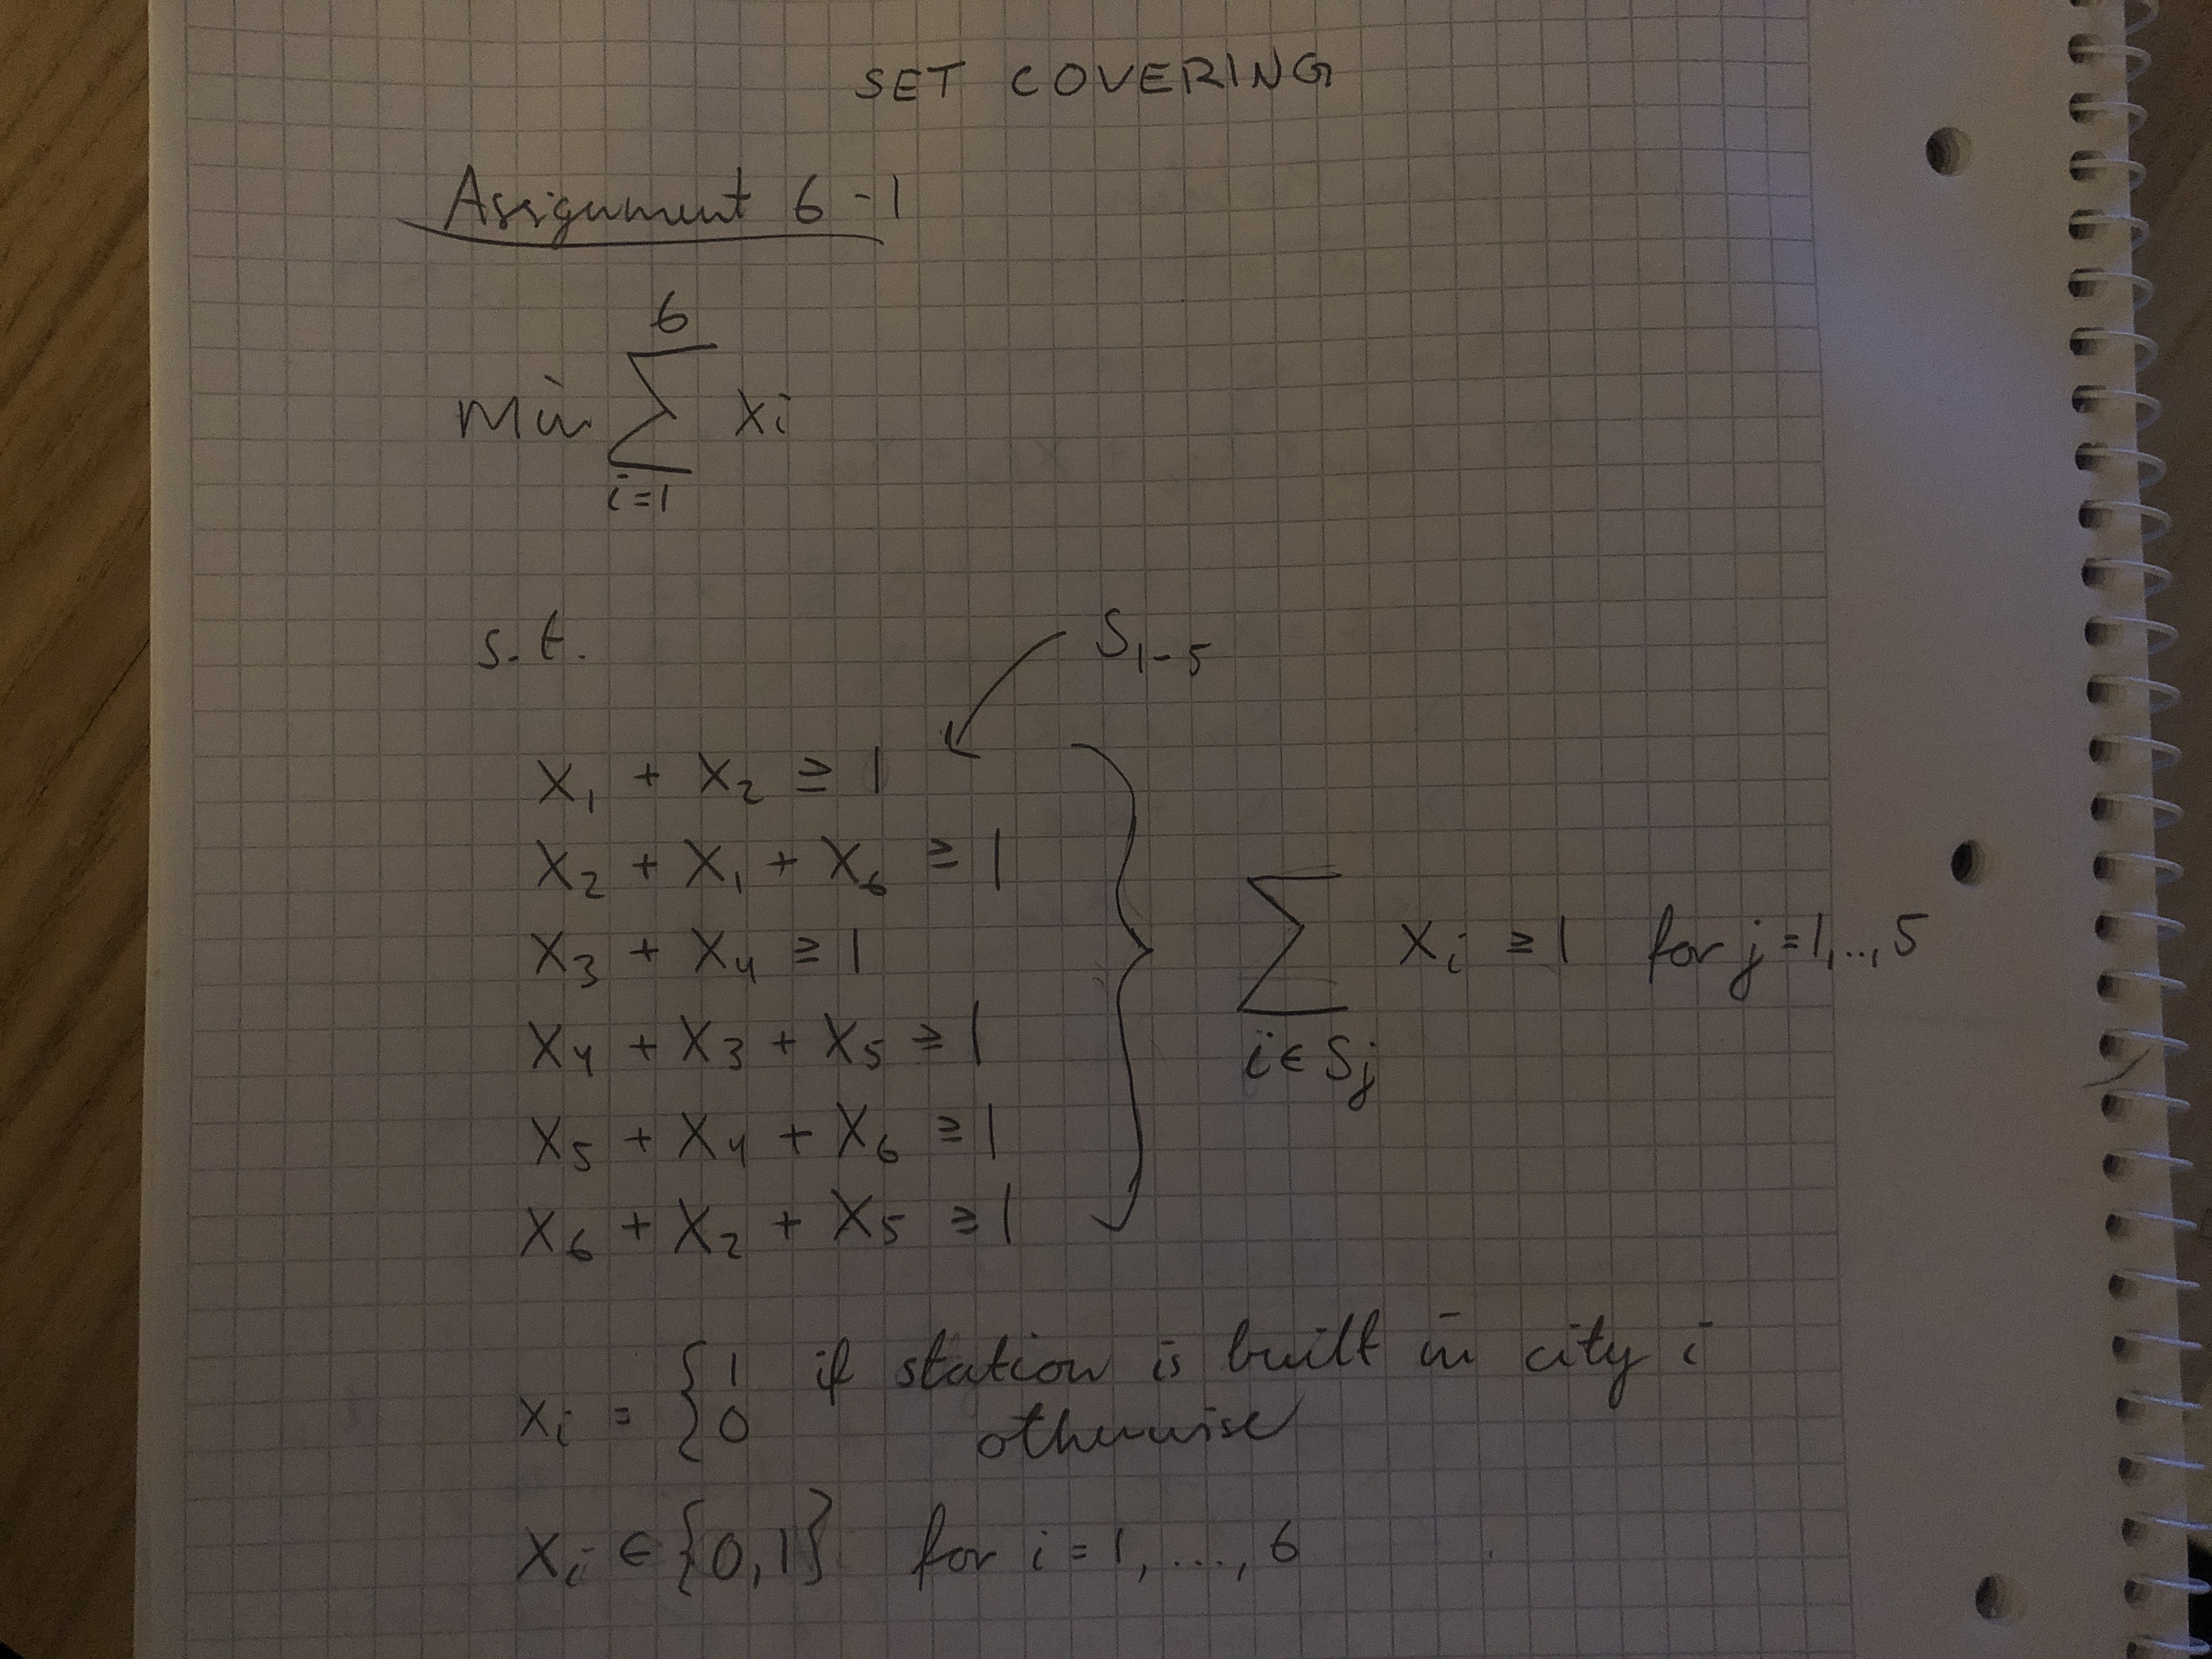 SET COVERING
Assignment 6-1
6
Min ∑ xi
i=1
s.t.
S₁₋₅
X₁ + X₂ ≥ 1
X₂ + X₁ + X₆ ≥ 1
X₃ + X₄ ≥ 1
X₄ + X₃ + X₅ ≥ 1
X₅ + X₄ + X₆ ≥ 1
X₆ + X₂ + X₅ ≥ 1
∑ Xi ≥ 1 for j=1,..,5
i∈Sj
Xi = {1 if station is built in city i
0 otherwise
Xi ∈ {0,1} for i = 1, ..., 6